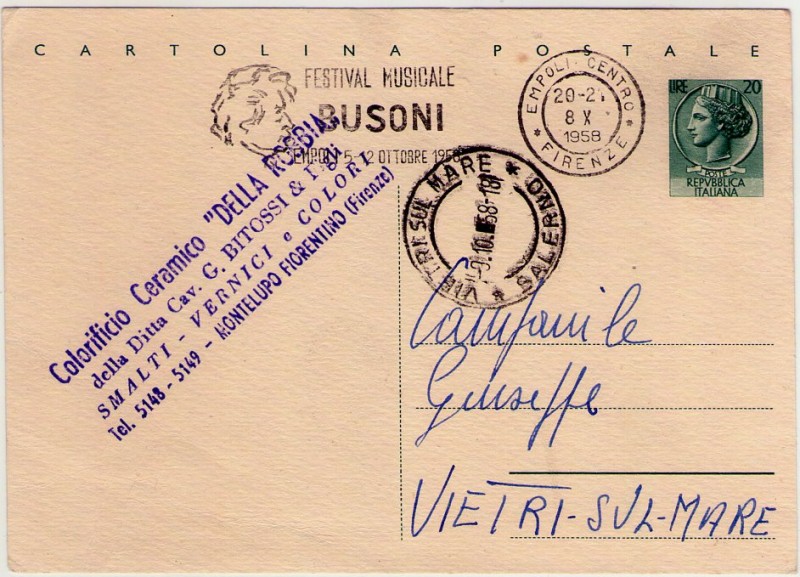 CARTOLINA POSTALE
FESTIVAL MUSICALE
BUSONI
EMPOLI 5-12 OTTOBRE 1958
EMPOLI-CENTRO
20-21
8 X
1958
* FIRENZE *
LIRE 20
POSTE
REPVBBLICA
ITALIANA
VIETRI SUL MARE * SALERNO *
-9.10.58-18
Colorificio Ceramico "DELLA ROBBIA"
della Ditta Cav. G. BITOSSI & Figli
SMALTI - VERNICI e COLORI
Tel. 5148 - 5149 - MONTELUPO FIORENTINO (Firenze)
Campanile
Giuseppe
VIETRI-SUL-MARE